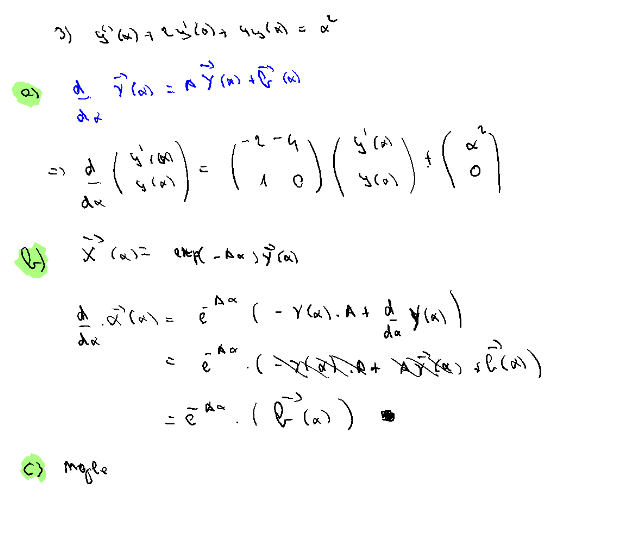 3) y''(α) + 2y'(α) + 4y(α) = α²
a) d/dα Y⃗(α) = A Y⃗(α) + b⃗(α)
=> d/dα (y'(α) y(α)) = (-2 -4 1 0) (y'(α) y(α)) + (α² 0)
b) X⃗(α) = exp(-Aα) Y⃗(α)
d/dα · x⃗(α) = e^-Aα (-Y(α).A + d/dα Y(α))
= e^-Aα · (-Y(α).A + AY⃗(α) + b⃗(α))
= e^-Aα · (b⃗(α))
c)